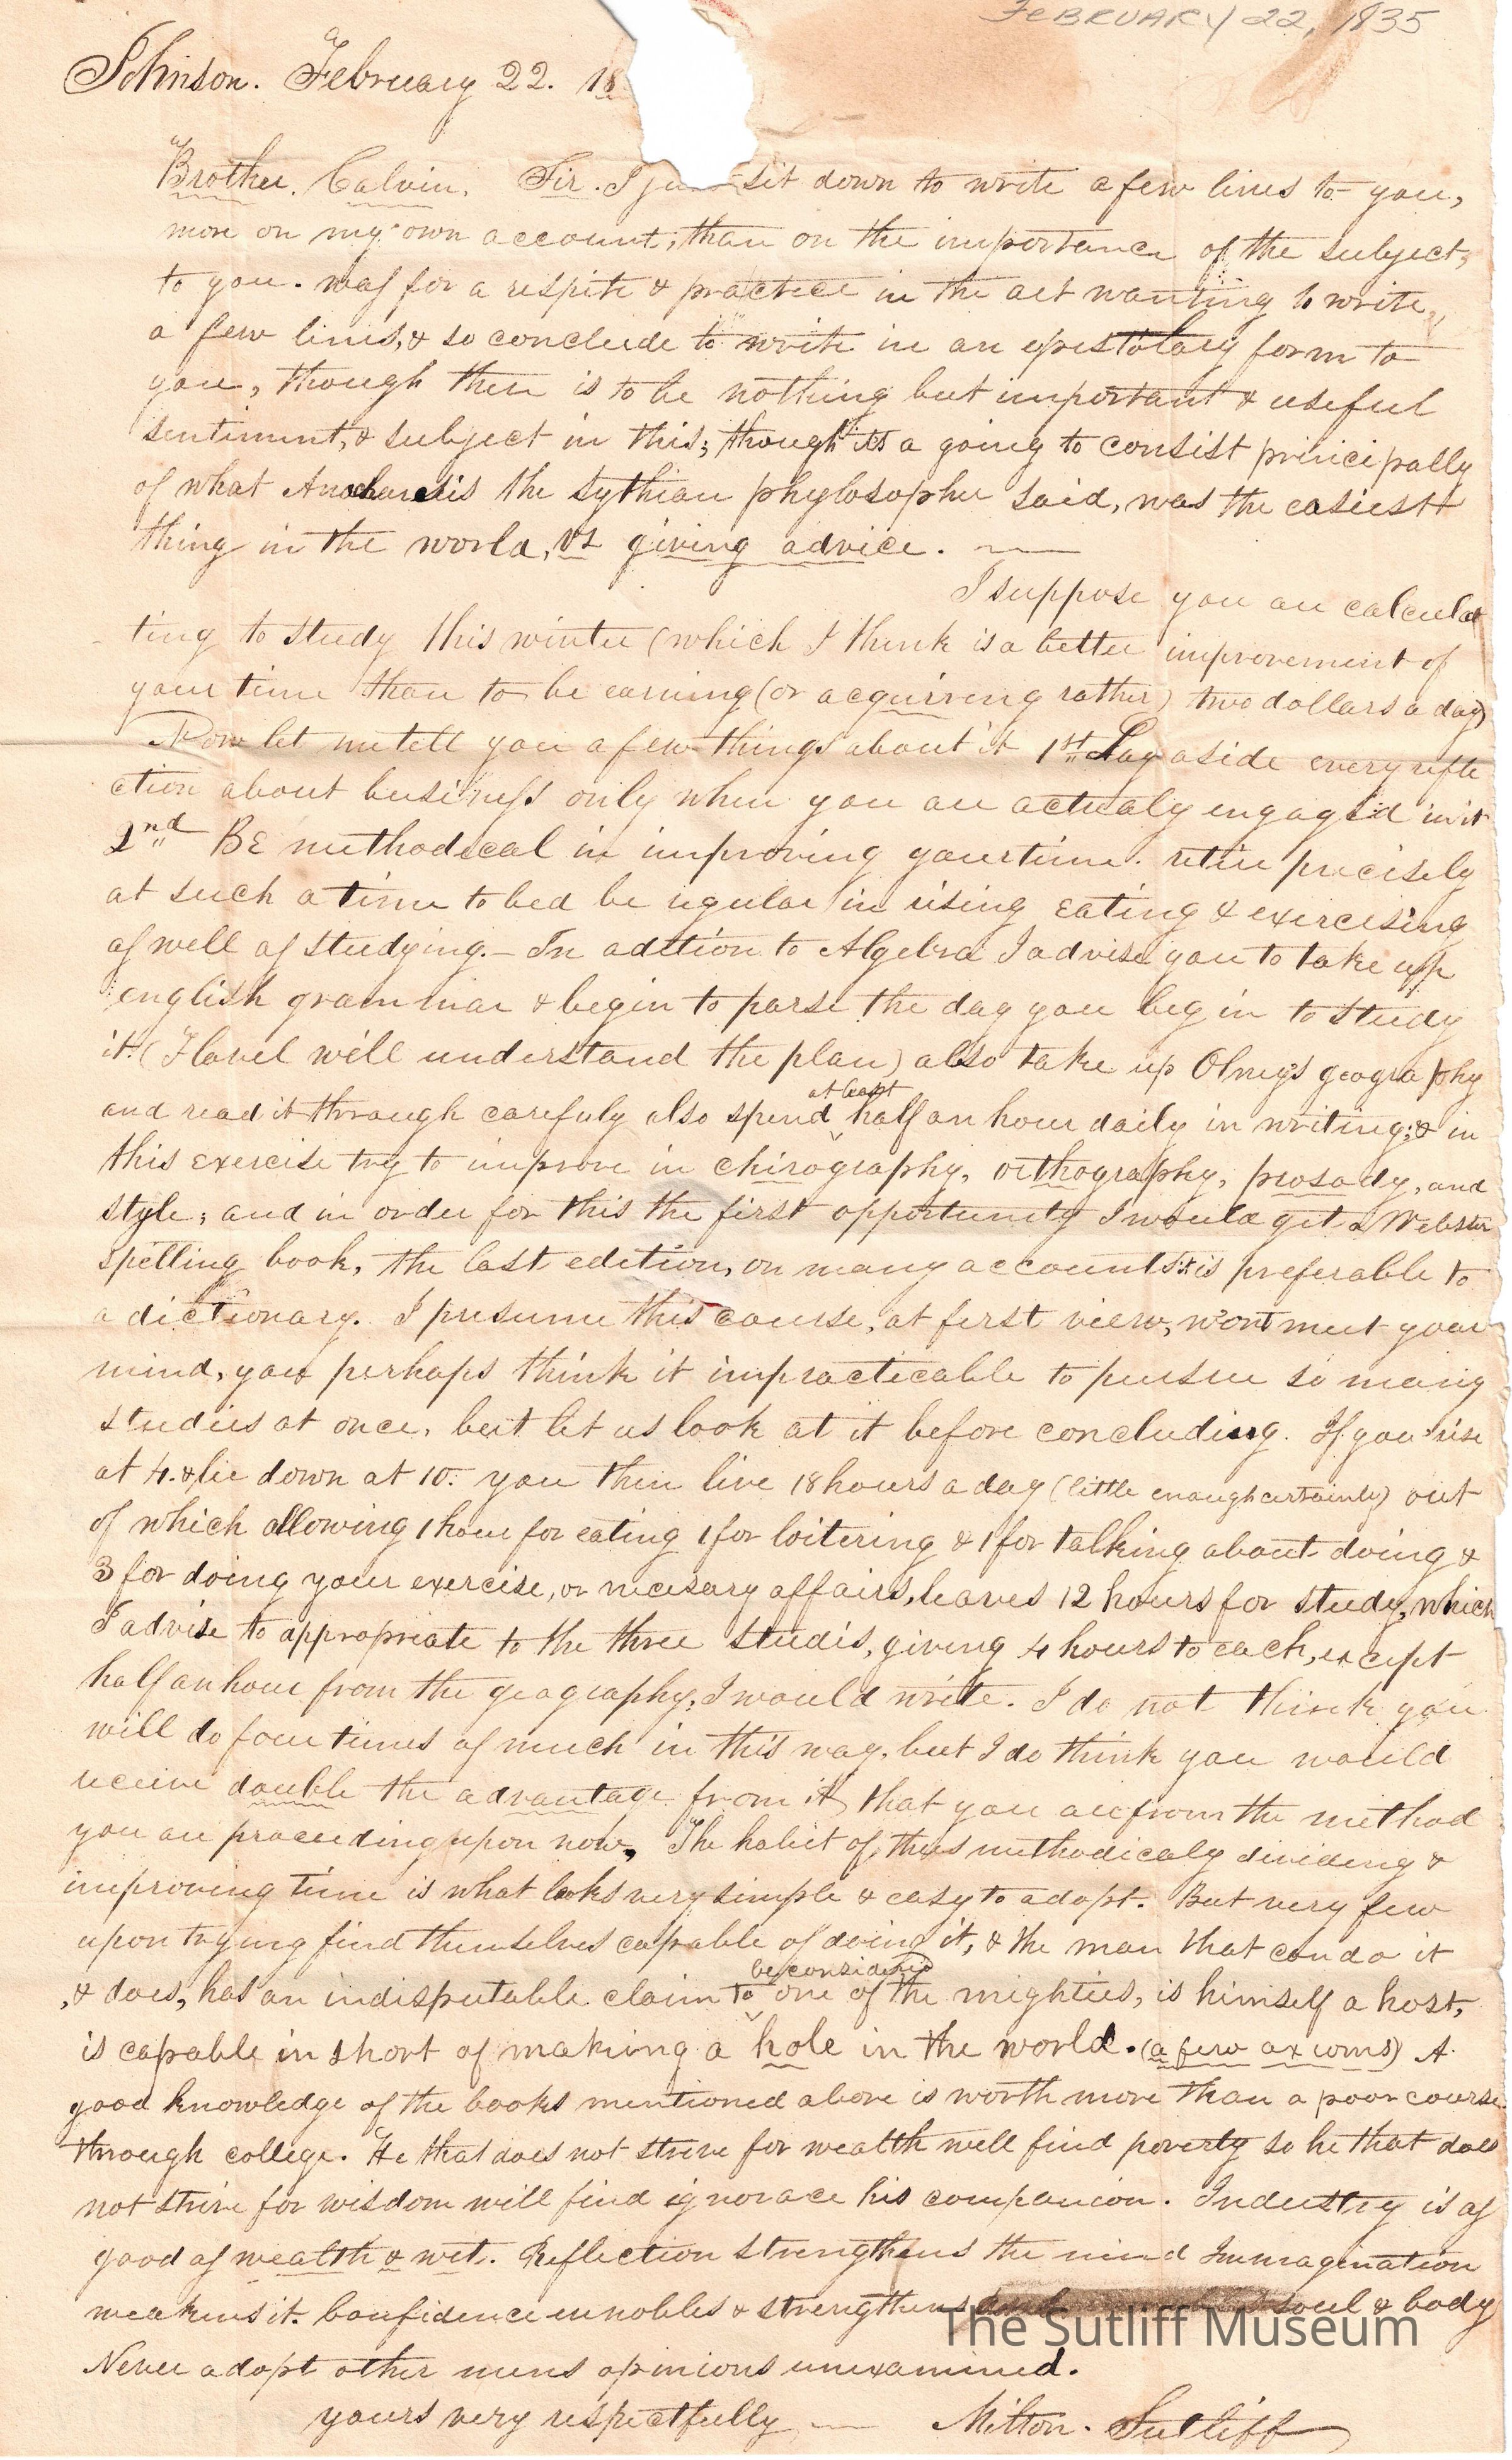 FEBRUARY 22, 1835
Johnson. February 22. 18
Brother. Calvin. Sir. I ju sit down to write a few lines to you,
more on my own account, than on the importance of the subject,
to you. was for a respite & practice in the act wanting to write,
a few lines, & so conclude to write in an epistolary form to
you, though there is to be nothing but important & useful
sentiment, & subject in this; though its a going to consist principally
of what Anacharsis the Sythian phylosopher said, was the easiest
thing in the world, vz giving advice.
I suppose you are calcula
ting to study this winter (which I think is a better improvement of
your time than to be earning (or acquirring rather) two dollars a day)
Now let me tell you a few things about it 1st Lay aside every refle
ction about business only when you are actualy engaged in it
2nd BE methodical in improving your time. retire precisely
at such a time to bed be regular in rising eating & exercising
as well as studying. - In adition to Algebra I advise you to take up
english grammar & begin to parse the day you begin to study
it. (Flavel will understand the plan) also take up Olney's geography
and read it through carefuly also spend at least half an hour daily in writing; & in
this exercise try to improve in chirography, orthography, prosody, and
style; and in order for this the first opportunity I would get a Webster
spelling book, the last edition, on many accounts is preferable to
a dictionary. I presume this course, at first view, wont meet your
mind, you perhaps think it impracticable to pursue so many
studies at once, but let us look at it before concluding. If you rise
at 4. & lie down at 10. you then live 18 hours a day (little enough certainly) out
of which allowing 1 hour for eating 1 for loitering & 1 for talking about doing &
3 for doing your exercise, or necesary affairs, leaves 12 hours for study, which
I advise to appropriate to the three studis, giving 4 hours to each, except
half an hour from the geography, I would write. I do not think you
will do four times as much in this way, but I do think you would
receive double the advantage from it, that you are from the method
you are proceeding upon now. The habit of thus methodicaly dividing &
improving time is what looks very simple & easy to adopt. But very few
upon trying find themselves capable of doing it, & the man that can do it
, & does, has an indisputable claim to be considered one of the mighties, is himself a host,
is capable in short of making a hole in the world. (a few axioms) A
good knowledge of the books mentioned above is worth more than a poor course
through college. He that does not strive for wealth will find poverty so he that does
not strive for wisdom will find ignorace his companion. Industry is as
good as wealth & wit. Reflection strengthens the mind Immagination
weakens it. Confidence ennobles & strengthens soul & body
Never adopt other mens opinions unexamined.
yours very respectfully Milton. Sutliff
The Sutliff Museum